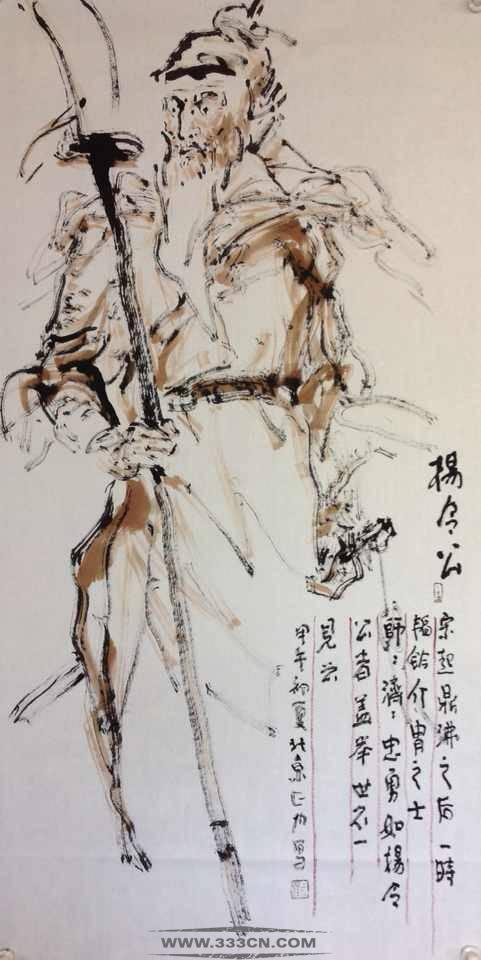 楊令公
宋起鼎沸之后一時
韜鈐介胄之士
師師濟濟忠勇如楊令
公者蓋舉世不一
見云
甲午初夏北京
WWW.333CN.COM